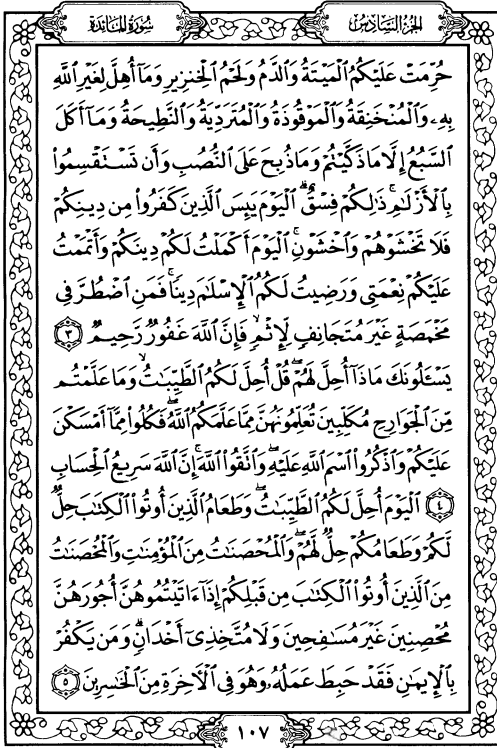 الجزء السادس
سورة المائدة
حُرِّمَتْ عَلَيْكُمُ الْمَيْتَةُ وَالدَّمُ وَلَحْمُ الْخِنزِيرِ وَمَا أُهِلَّ لِغَيْرِ اللَّهِ
بِهِۦ وَالْمُنْخَنِقَةُ وَالْمَوْقُوذَةُ وَالْمُتَرَدِّيَةُ وَالنَّطِيحَةُ وَمَا أَكَلَ
السَّبُعُ إِلَّا مَا ذَكَّيْتُمْ وَمَا ذُبِحَ عَلَى النُّصُبِ وَأَن تَسْتَقْسِمُوا
بِالْأَزْلَٰمِ ۚ ذَٰلِكُمْ فِسْقٌ ۗ الْيَوْمَ يَئِسَ الَّذِينَ كَفَرُوا مِن دِينِكُمْ
فَلَا تَخْشَوْهُمْ وَاخْشَوْنِ ۚ الْيَوْمَ أَكْمَلْتُ لَكُمْ دِينَكُمْ وَأَتْمَمْتُ
عَلَيْكُمْ نِعْمَتِي وَرَضِيتُ لَكُمُ الْإِسْلَٰمَ دِينًا ۚ فَمَنِ اضْطُرَّ فِي
مَخْمَصَةٍ غَيْرَ مُتَجَانِفٍ لِّإِثْمٍ ۙ فَإِنَّ اللَّهَ غَفُورٌ رَّحِيمٌ ٣
يَسْـَٔلُونَكَ مَاذَا أُحِلَّ لَهُمْ ۖ قُلْ أُحِلَّ لَكُمُ الطَّيِّبَٰتُ ۙ وَمَا عَلَّمْتُم
مِّنَ الْجَوَارِحِ مُكَلِّبِينَ تُعَلِّمُونَهُنَّ مِمَّا عَلَّمَكُمُ اللَّهُ ۖ فَكُلُوا مِمَّا أَمْسَكْنَ
عَلَيْكُمْ وَاذْكُرُوا اسْمَ اللَّهِ عَلَيْهِ ۖ وَاتَّقُوا اللَّهَ ۚ إِنَّ اللَّهَ سَرِيعُ الْحِسَابِ
٤ الْيَوْمَ أُحِلَّ لَكُمُ الطَّيِّبَٰتُ ۖ وَطَعَامُ الَّذِينَ أُوتُوا الْكِتَٰبَ حِلٌّ
لَّكُمْ وَطَعَامُكُمْ حِلٌّ لَّهُمْ ۖ وَالْمُحْصَنَٰتُ مِنَ الْمُؤْمِنَٰتِ وَالْمُحْصَنَٰتُ
مِنَ الَّذِينَ أُوتُوا الْكِتَٰبَ مِن قَبْلِكُمْ إِذَا ءَاتَيْتُمُوهُنَّ أُجُورَهُنَّ
مُحْصِنِينَ غَيْرَ مُسَٰفِحِينَ وَلَا مُتَّخِذِي أَخْدَانٍ ۗ وَمَن يَكْفُرْ
بِالْإِيمَٰنِ فَقَدْ حَبِطَ عَمَلُهُۥ وَهُوَ فِي الْءَاخِرَةِ مِنَ الْخَٰسِرِينَ ٥
١٠٧